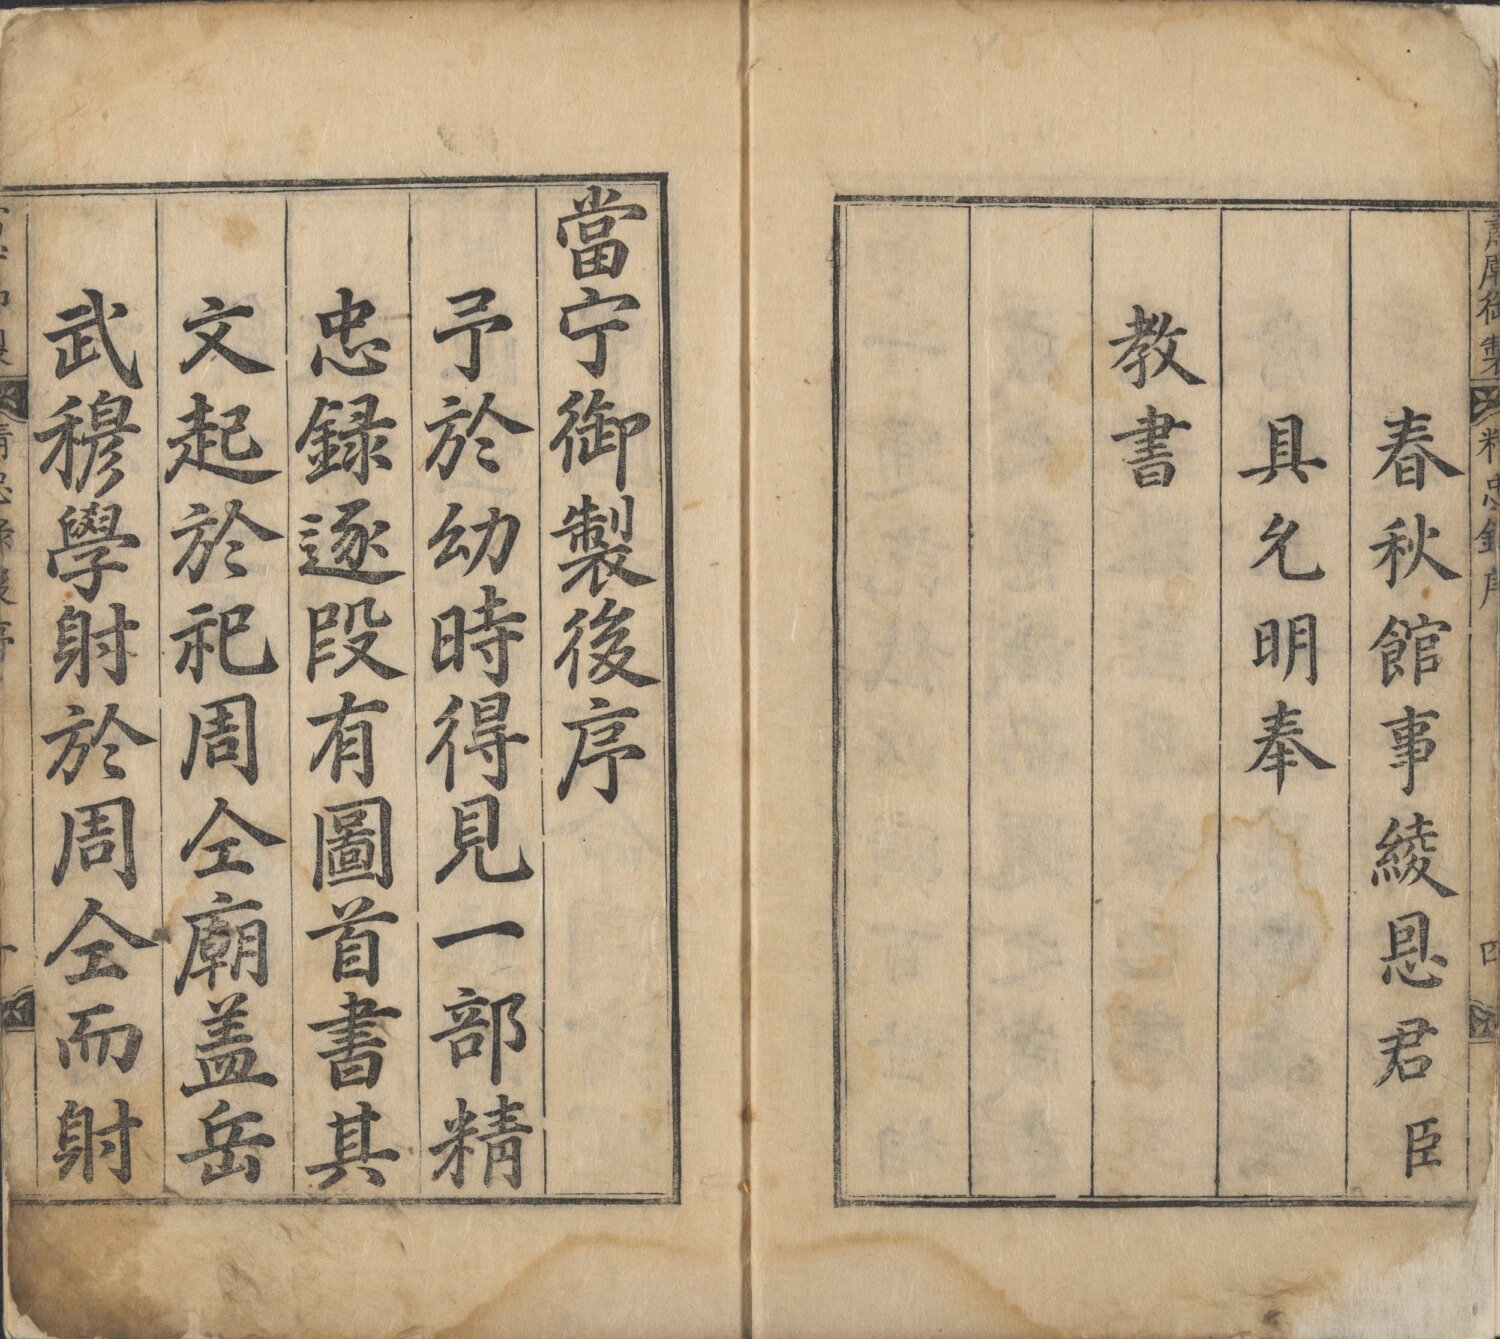 肅廟御製 精忠錄序 四
春秋館事綾恩君臣
具允明奉
教書
當宁御製後序
予於幼時得見一部精
忠録逐段有圖首書其
文起於祀周仝廟盖岳
武穆學射於周仝而射